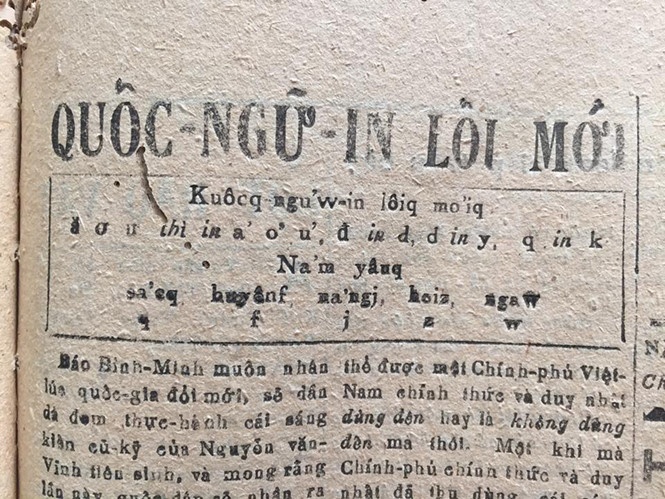 QUỐC-NGỮ-IN LỐI MỚI
Kuôcq-ngu'w-in lôiq mo'iq
ă ơ ư thì in a' o' u', đ in d, d in y, q in k
Na'm yâuq
sa'cq huyênf na'ngj hoiz ngaw
q f j z w
Báo Bình-Minh muốn nhân
lúc quốc-gia đổi mới, sẽ dần
dà đem thực-hành cái sáng
kiến cũ-kỹ của Nguyễn văn-
Vĩnh tiên sinh, và mong rằng
lần này quốc dân sẽ nhận ra
thể được một Chính-phủ Việt-
Nam chính thức và duy nhất
dùng đến hay là không dùng
đến mà thôi. Một khi mà
Chính-phủ chính thức và duy
nhất đã thu dùng cái